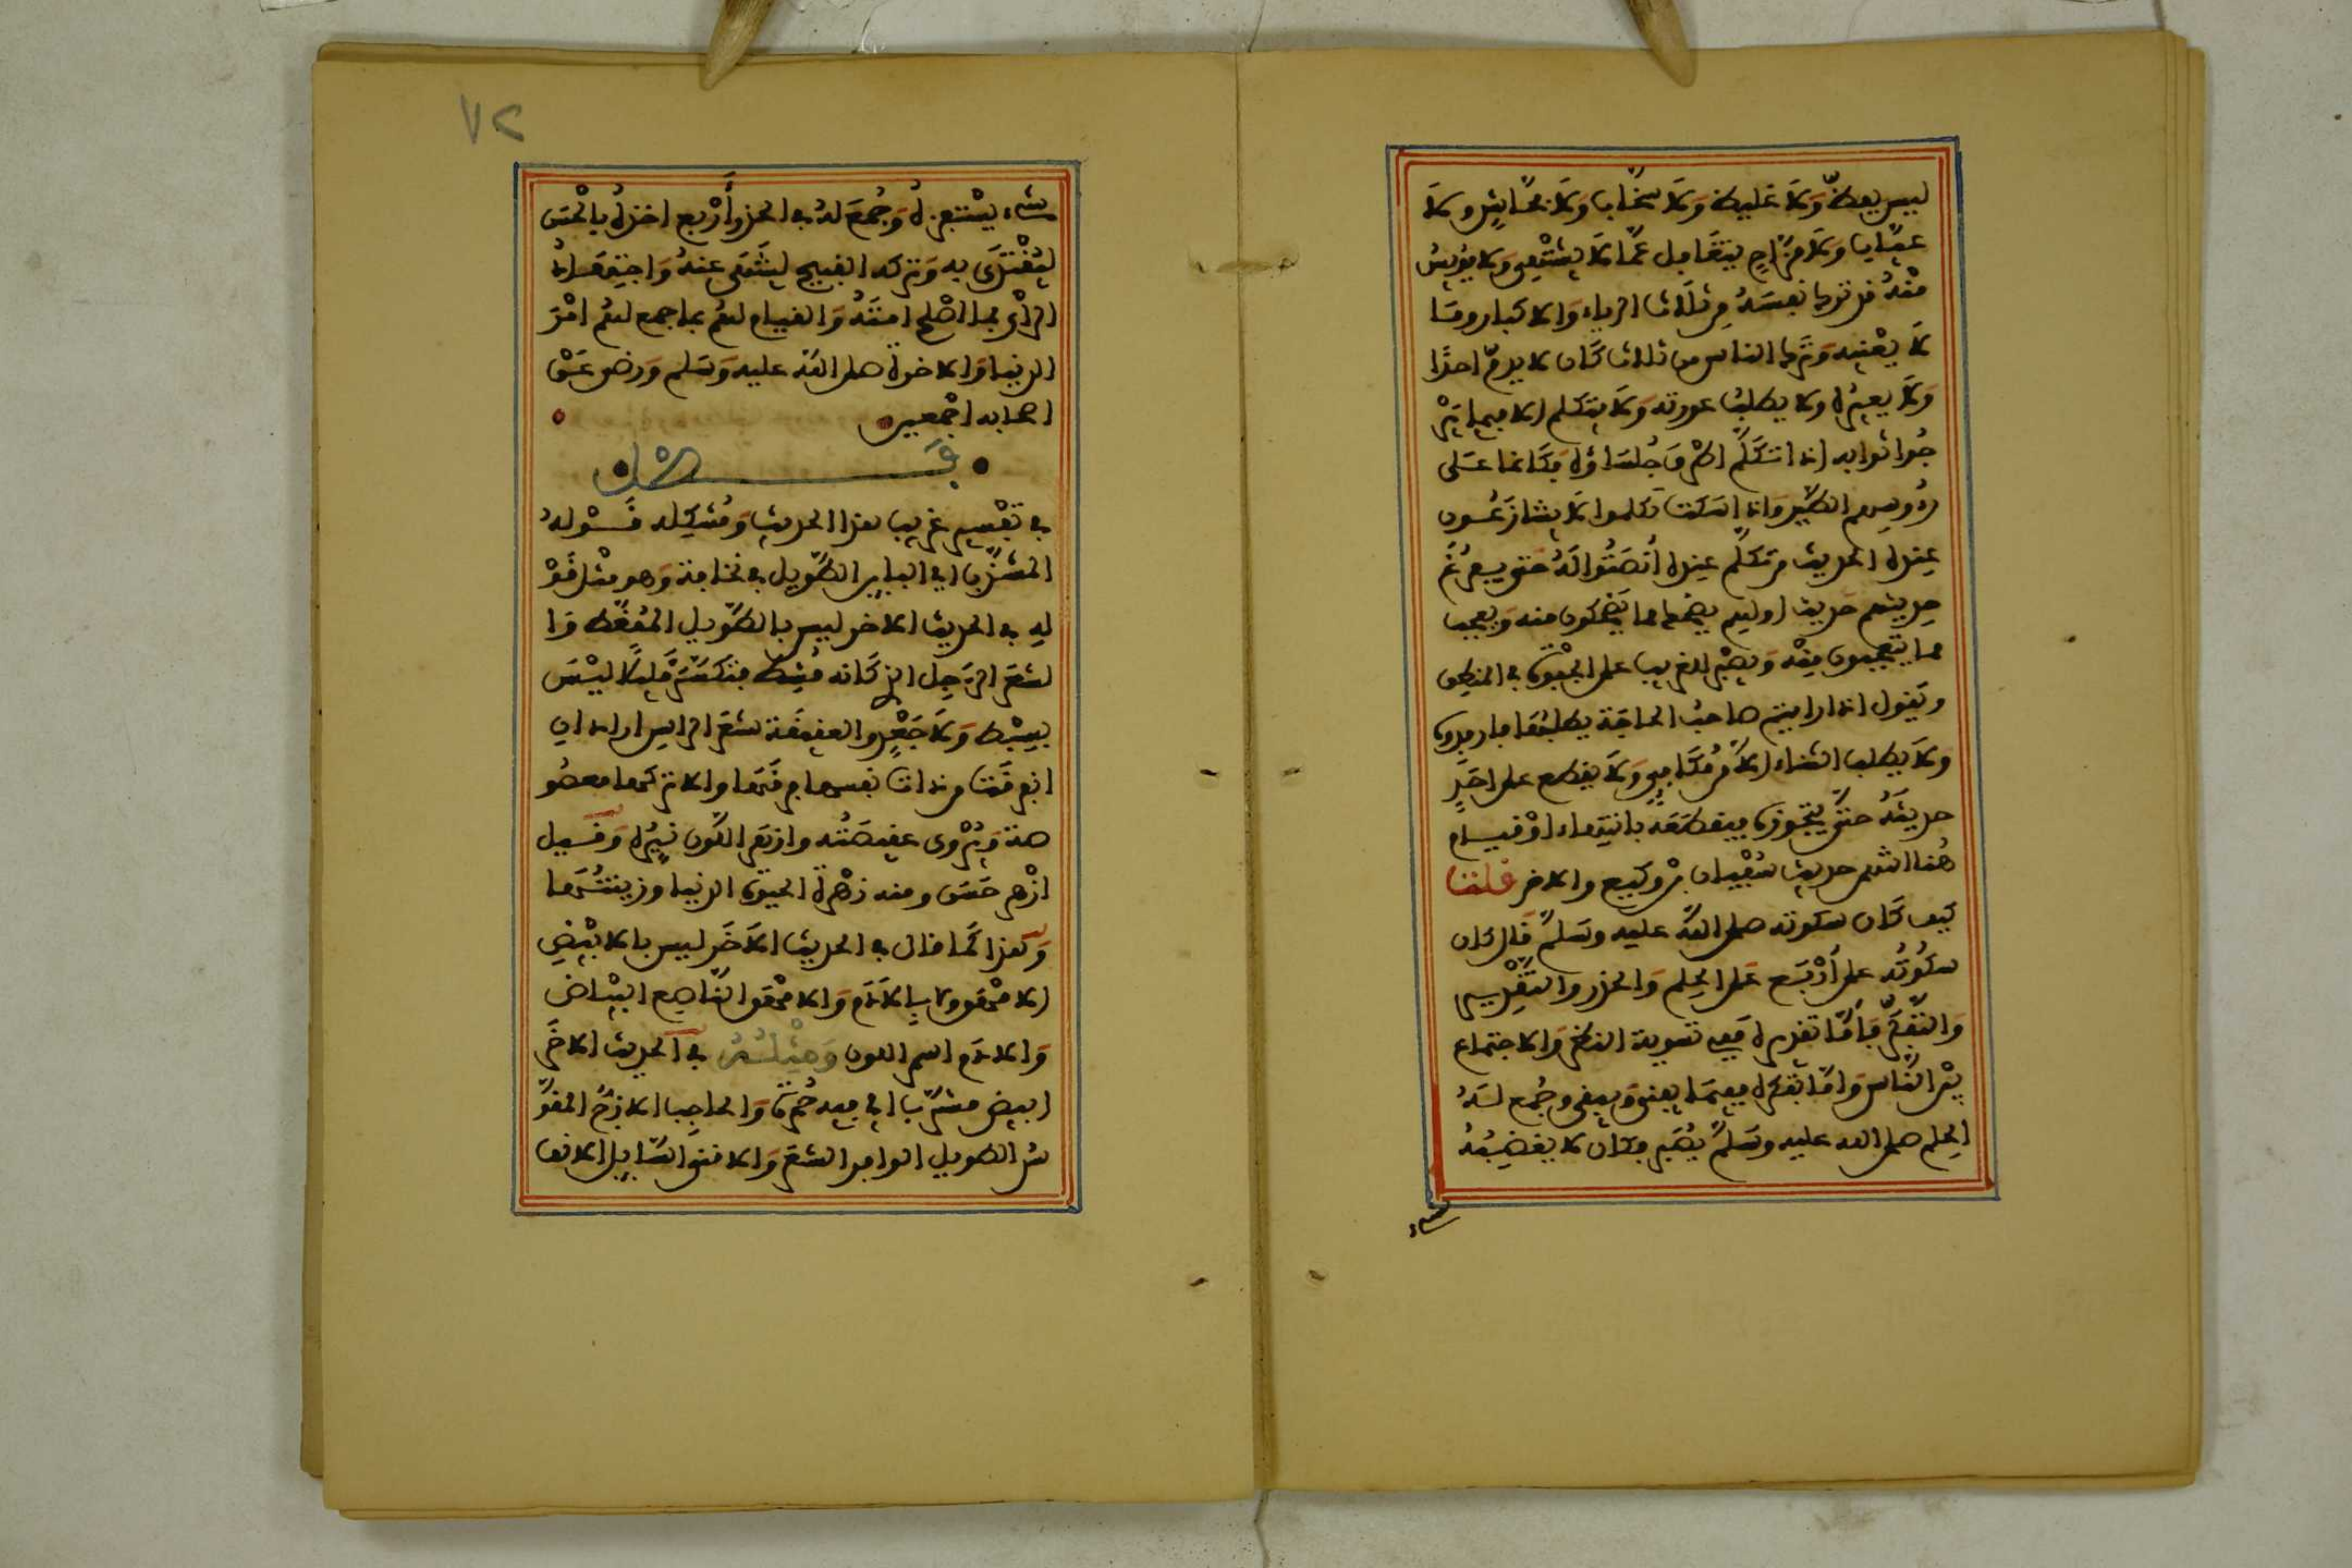 ليس بفظ ولا غليظ ولا سخاب ولا فحاش ولا
عياب ولا مزاح يتغافل عما لا يشتهي ولا يويس
منه قد ترك نفسه من ثلاث الرياء والاكبار وما
لا يعنيه وترك الناس من ثلاث كان لا يذم احدا
ولا يعيره ولا يطلب عورته ولا يتكلم الا فيما يرْ
جُوا ثوابه اذا تكلم اطرق جلساؤه كانما على
رءوسهم الطير واذا سكت تكلموا لا يتنازعون
عنده الحديث من تكلم عنده أنصتوا له حتى يفرغ
حديثهم حديث اولهم يضحك مما يضحكون منه ويعجب
مما يتعجبون منه ويصبر للغريب على الجفوة في المنطق
ويقول اذا رايتم صاحب الحاجة يطلبها فارفدوه
ولا يطلب الثناء الا من مكافئ ولا يقطع على احد
حديثه حتى يتجوزه فيقطعه بانتهاء او قيام
هنا انتهى حديث سفيان بن وكيع والاخر قلت
كيف كان سكوته صلى الله عليه وسلم قال كان
سكوته على أربع على الحلم والحذر والتقدير
والتفكر فأما تقديره ففي تسوية النظر والاجتماع
بين الناس واما تفكره ففيما يبقى ويفنى وجُمع له
الحلم صلى الله عليه وسلم في الصبر فكان لا يغضبه
شيء
٧٢
شيء يستفزه وجُمع له في الحذر أربع اخذه بالحسن
ليُقْتَدَى به وتركه القبيح لينتهى عنه واجتهاد
الرأي بما اصلح امته والقيام لهم بما جمع لهم امْرَ
الدنيا والاخرة صلى الله عليه وسلم ورضي عن
اصحابه اجمعين
فصل
في تفسير غريب هذا الحديث ومُشكِله قوله
المشذب اي البائن الطويل في نحافة وهو مثل قوْ
له في الحديث الاخر ليس بالطويل الممغط وا
لشعر الرجل الذي كانه مُشط فتكسر قليلا ليس
بسبط ولا جَعْد والعقيقة شعر الراس اراد ان
انفرقت من ذات نفسها فرقها والا تركها معقو
صة ويُرْوى عقيصته وازهر اللون نيّره وقيل
ازْهر حسن ومنه زهرة الحيوة الدنيا اي زينتُها
وهذا كما قال في الحديث الآخر ليس بالابيض
الامْهق ولا بالآدم والامْهق الناصع البياض
والادم اسمر اللون ومِثْلُه في الحديث الاخر
ابيض مشرّب اي فيه حُمرة والحاجب الازجُ المقوّ
س الطويل الوافر الشعر والاقنى السّايل الانف